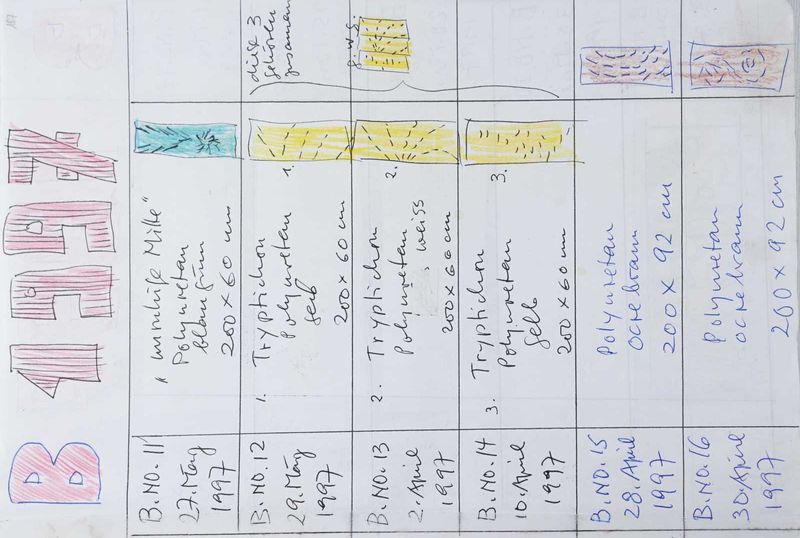 B 1997
B.NO.11
27. März
1997
Polyuretan
blaugrün
200 x 60 cm
B.NO.12
29. März
1997
1. Tryptichon
Polyuretan
gelb
200 x 60 cm
1.
diese 3
gehören
zusammen
B.NO.13
2. April
1997
2. Tryptichon
Polyuretan
weiss
200 x 60 cm
2.
g. w. g.
B.NO.14
10. April
1997
3. Tryptichon
Polyuretan
gelb
200 x 60 cm
3.
B.NO.15
28. April
1997
Polyuretan
ockebraun
200 x 92 cm
B.NO.16
30. April
1997
Polyuretan
ockebraun
200 x 92 cm